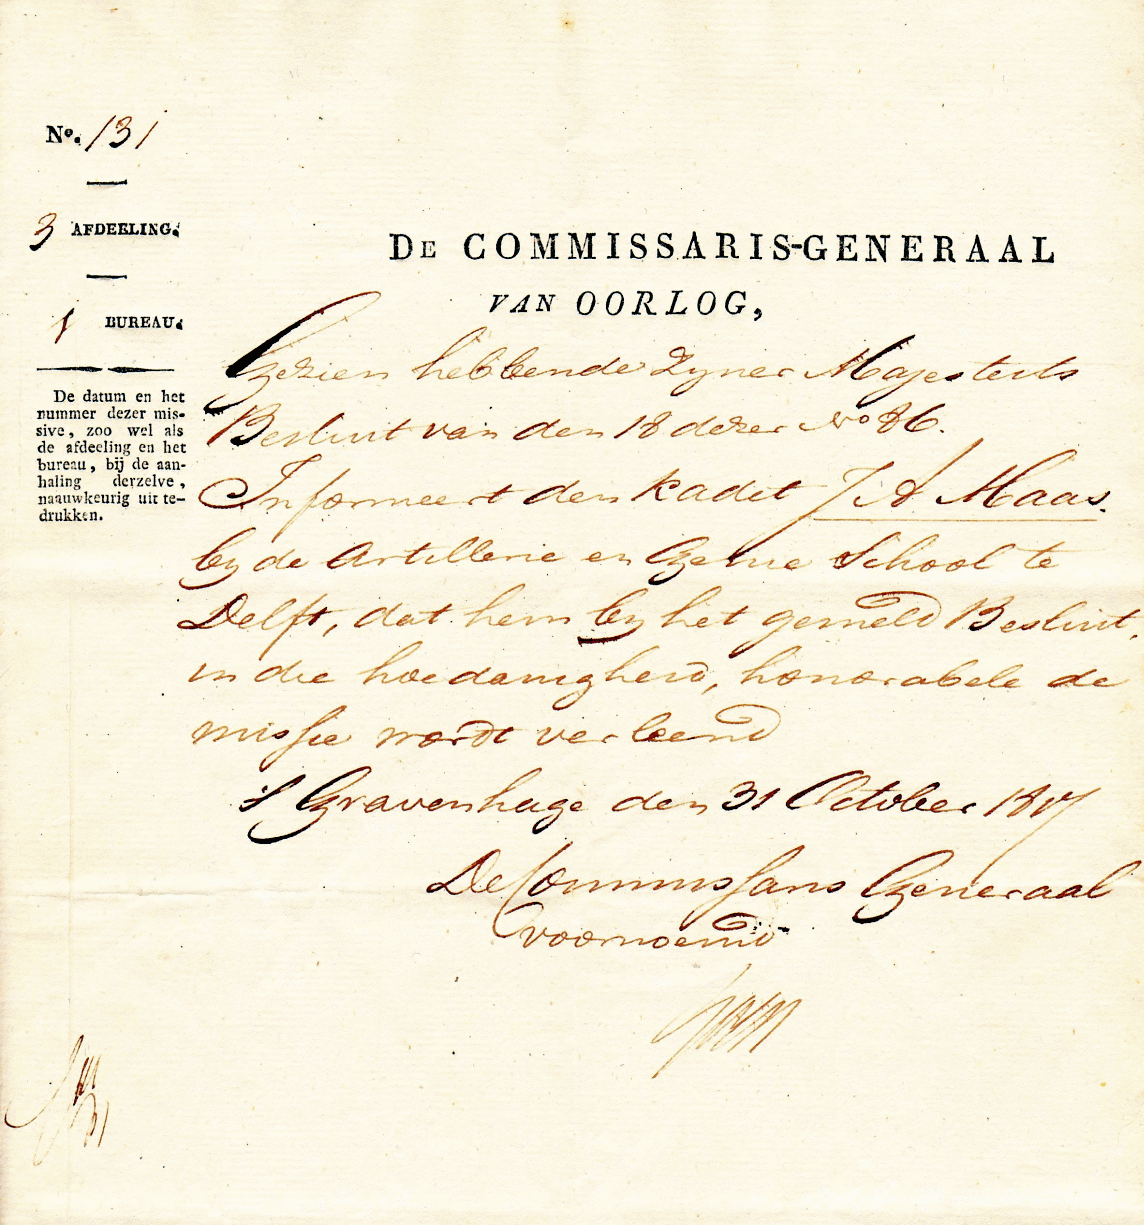 No. 131
3 AFDEELING.
1 BUREAU.
De datum en het
nummer dezer mis-
sive, zoo wel als
de afdeeling en het
bureau, bij de aan-
haling derzelve,
naauwkeurig uit te-
drukken.
DE COMMISSARIS-GENERAAL
VAN OORLOG,
Gezien hebbende Zyner Majesteits
Besluit van den 18 dezer No 86.
Informeert den kadet J A Maas
by de Artillerie en Genie School te
Delft, dat hem by het gemeld Besluit,
in die hoedanigheid, honorabele de
missie wordt verleend
S Gravenhage den 31 October 1817
De Commissaris Generaal
voornoemd